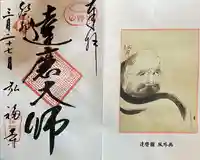 奉拝
達磨大師
三月二十七日
弘福寺
達磨図 風外画